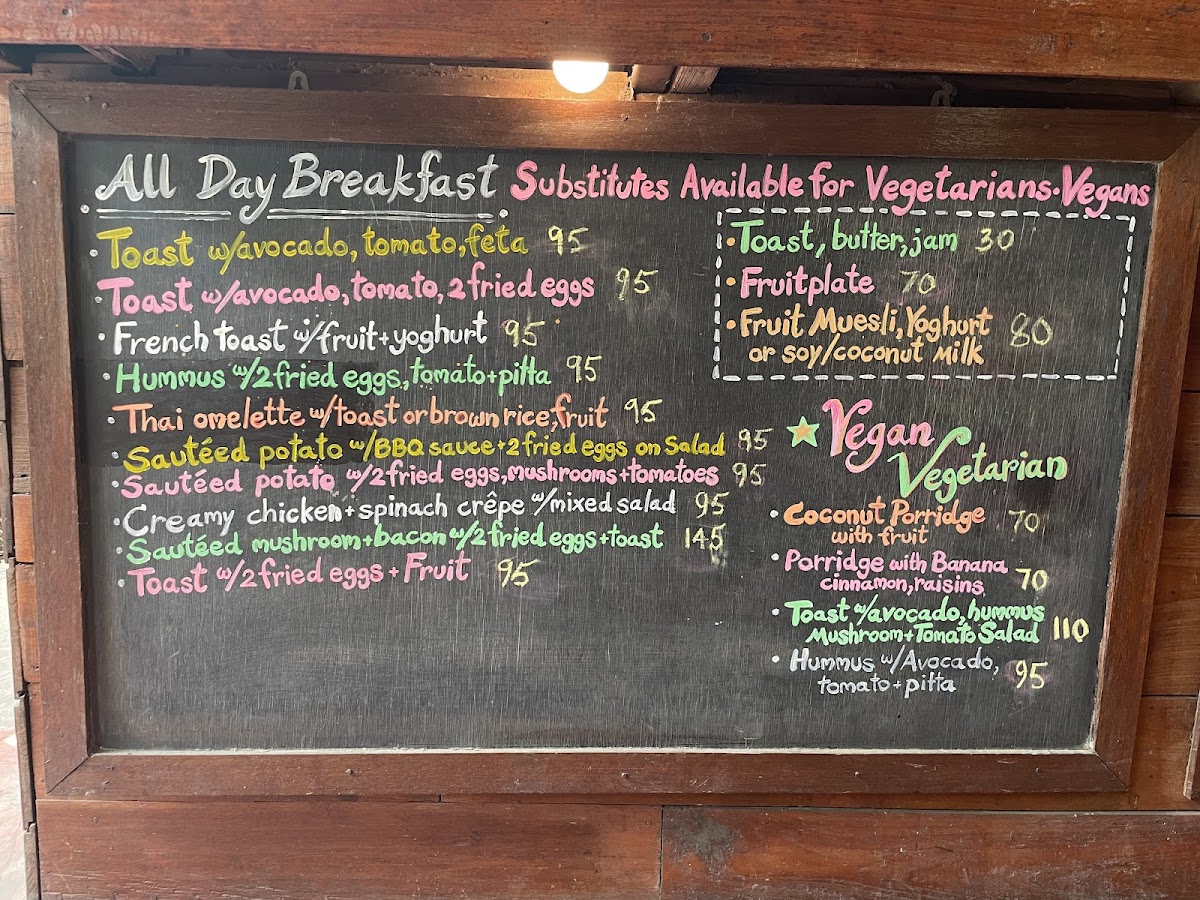 All Day Breakfast
Toast w/avocado, tomato, feta 95
Toast w/avocado, tomato, 2 fried eggs 95
French toast w/fruit + yoghurt 95
Hummus w/2 fried eggs, tomato + pitta 95
Thai omelette w/toast or brown rice, fruit 95
Sautéed potato w/BBQ sauce + 2 fried eggs on Salad 95
Sautéed potato w/2 fried eggs, mushrooms + tomatoes 95
Creamy chicken + spinach crêpe w/mixed salad 95
Sautéed mushroom + bacon w/2 fried eggs + toast 145
Toast w/2 fried eggs + Fruit 95
Substitutes Available for Vegetarians · Vegans
Toast, butter, jam 30
Fruitplate 70
Fruit Muesli, Yoghurt 80
or soy/coconut milk
Vegan
Vegetarian
Coconut Porridge 70
with fruit
Porridge with Banana 70
cinnamon, raisins
Toast w/avocado, hummus
Mushroom + Tomato Salad 110
Hummus w/Avocado, 95
tomato + pitta